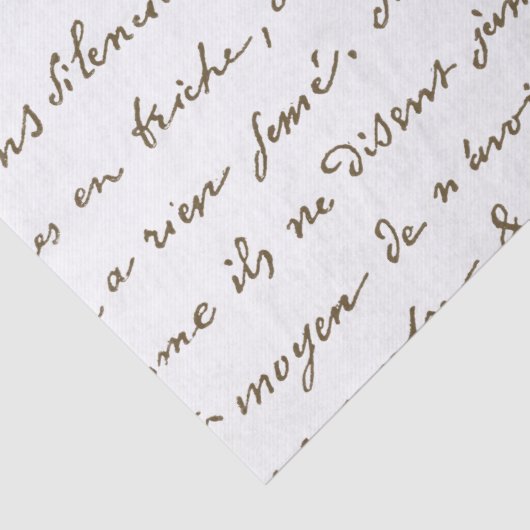 silen
en friche,
a rien semé.
ils ne disent jam
moyen de n'avoi
&